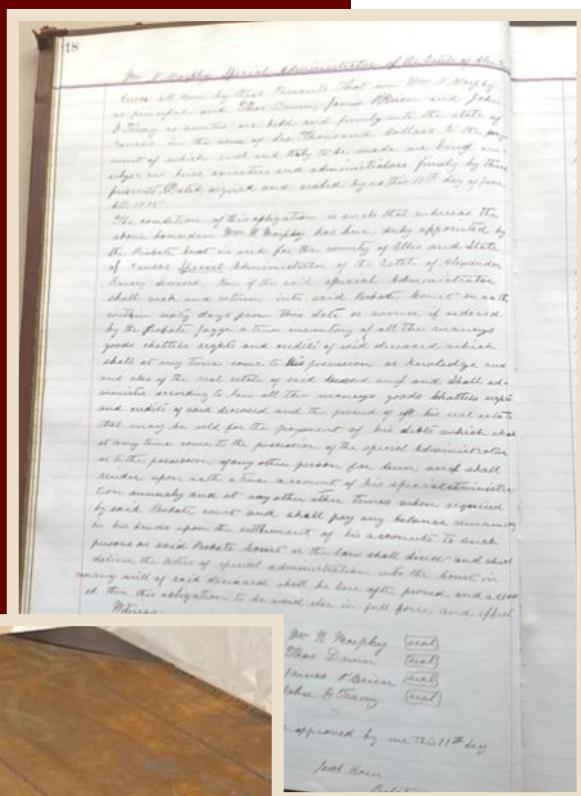 18
Wm N Morphy Special Administrator of the Estate of Alex
Know all men by these Presents That we Wm N Morphy
as principal and Thos Dunn, James O'Brien and John
as sureties are held and firmly unto the state of
Kansas in the sum of Six Thousand Dollars to the pay
ment of which well and truly to be made we bind our
selves our heirs executors and administrators firmly by these
presents. Dated signed and sealed by us this 11th day of June
1875
The condition of this obligation is such that whereas the
above bounden Wm N Morphy has been duly appointed by
the Probate Court in and for the county of Ellis and State
of Kansas Special Administrator of the Estate of Alexander
deceased. Now if the said special Administrator
shall make and return into said Probate Court on oath
within sixty days from this date or sooner if ordered
by the Probate Judge a true inventory of all the moneys
goods chattels rights and credits of said deceased which
shall at any time come to his possession or knowledge and
and also of the real estate of said deceased and shall ad
minister according to law all the moneys goods chattels rights
and credits of said deceased and the proceeds of all his real estate
that may be sold for the payment of his debts which shall
at any time come to the possession of the special Administrator
or to the possession of any other person for him, and shall
render upon oath a true account of his special administra
tion annualy and at any other times when required
by said Probate court and shall pay any balance remaining
in his hands upon the settlement of his accounts to such
persons as said Probate Court or the law shall direct and shall
deliver the letters of special administration into the court in
case any will of said deceased shall be here after proved and allow
ed then this obligation to be void else in full force and effect
Witness
Wm N Morphy (seal)
Thos Dunn (seal)
James O'Brien (seal)
John (seal)
approved by me this 11th day
Jacob